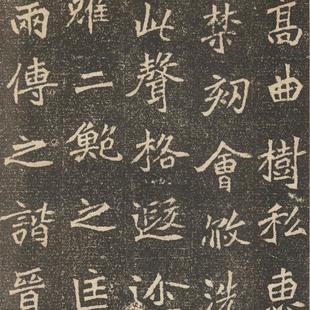 高曲樹私惠
禁劾會敘洗
此聲格遐迩
雖二鮑之匡
兩傳之諧晉